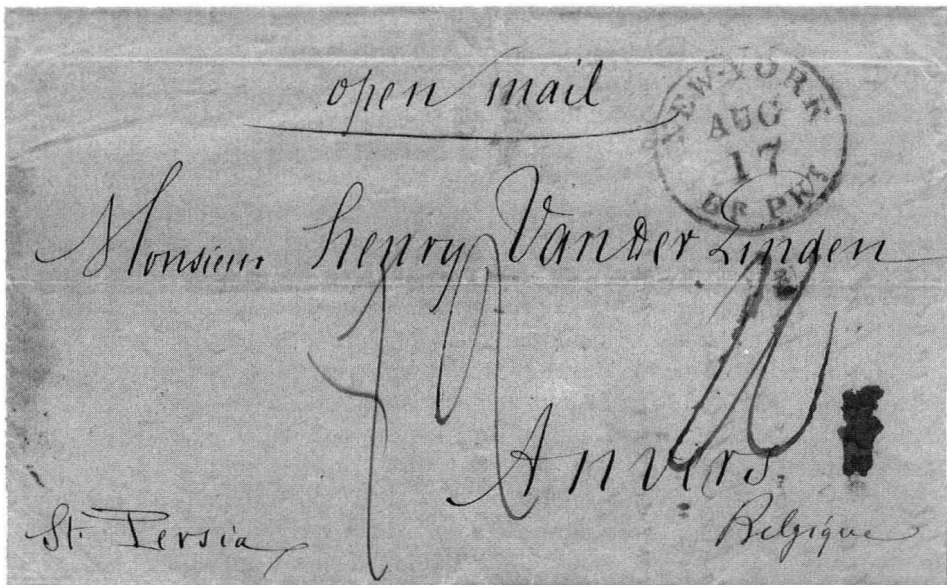 open mail
NEW-YORK
AUG
17
BR. PKT.
Monsieur Henry Vander Linden
Anvers.
Belgique
St. Persia